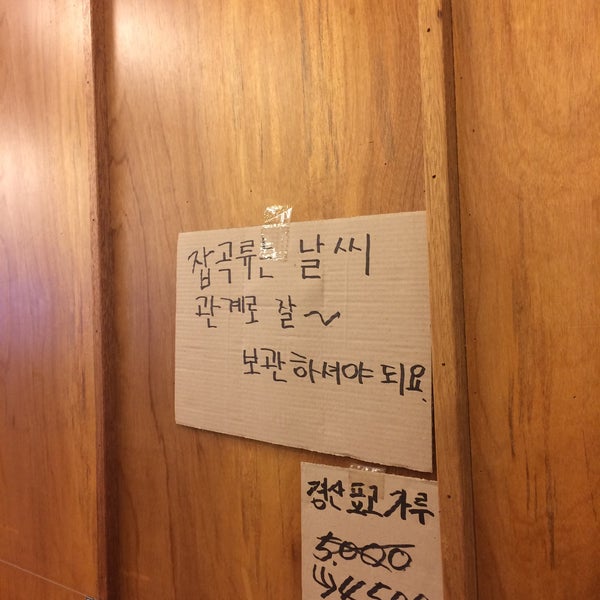 잡곡류는 날씨
관계로 잘~
보관하셔야 되요.
경산 표고 가루
5.000
→4,500